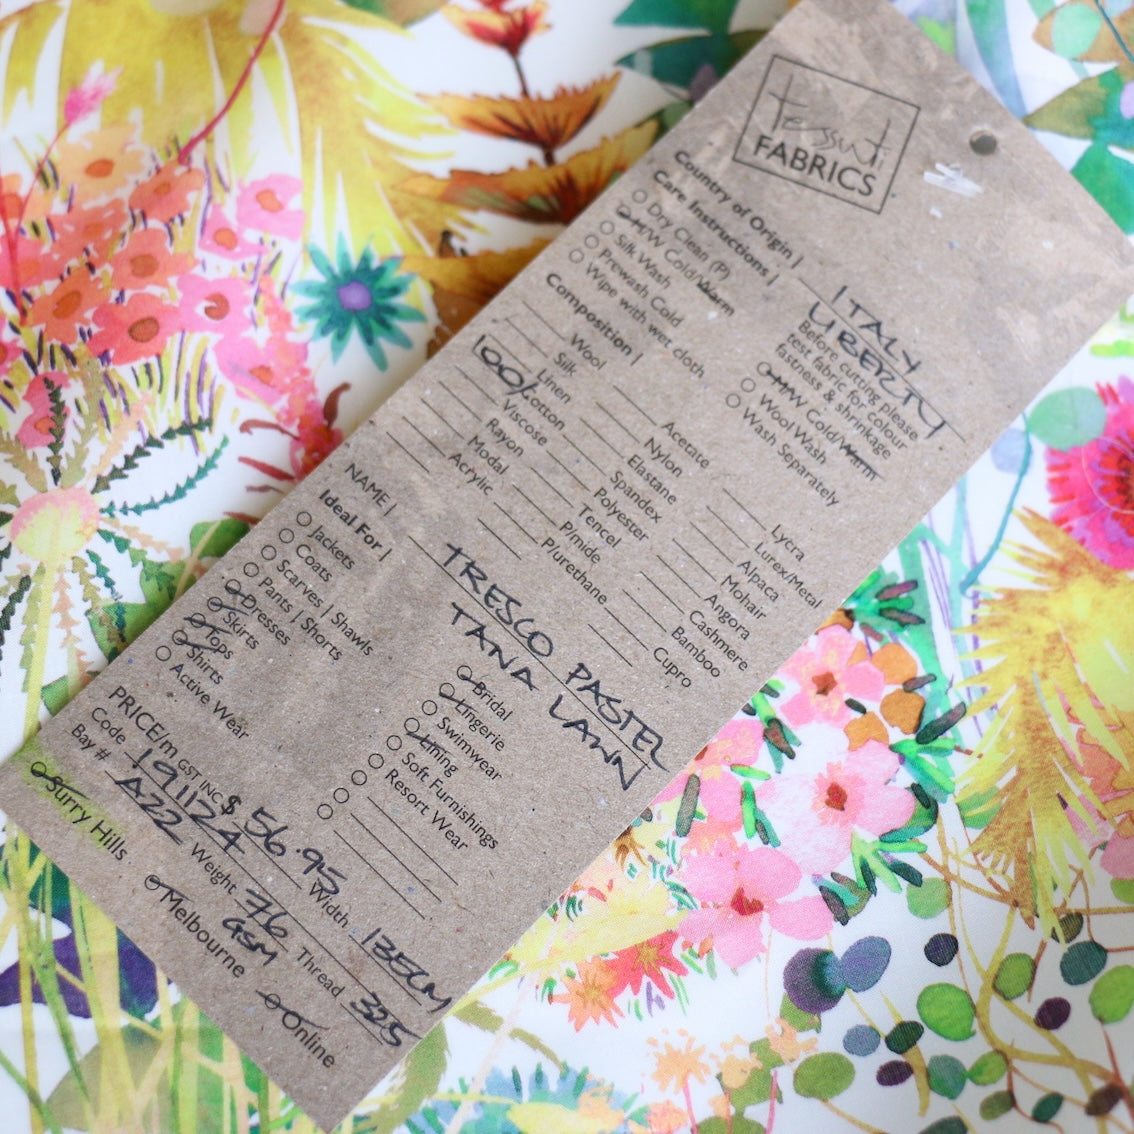 tessuti
FABRICS
Country of Origin | ITALY
LIBERTY
Care Instructions |
Before cutting please
test fabric for colour
fastness & shrinkage
Dry Clean (P)
H/W Cold/Warm
Silk Wash
Prewash Cold
Wipe with wet cloth
M/W Cold/Warm
Wool Wash
Wash Separately
Composition |
Wool
Silk
Linen
100% Cotton
Viscose
Rayon
Modal
Acrylic
Acetate
Nylon
Elastane
Spandex
Polyester
Tencel
P/mide
P/urethane
Lycra
Lurex/Metal
Alpaca
Mohair
Angora
Cashmere
Bamboo
Cupro
NAME | TRESCO PASTEL
TANA LAWN
Ideal For |
Jackets
Coats
Scarves | Shawls
Pants | Shorts
Dresses
Skirts
Tops
Shirts
Active Wear
Bridal
Lingerie
Swimwear
Lining
Soft Furnishings
Resort Wear
PRICE/m GST INC $ 56.95 Width 135CM
Code 191124 Weight 76 GSM Thread 325
Bay # A22
Surry Hills
Melbourne
Online